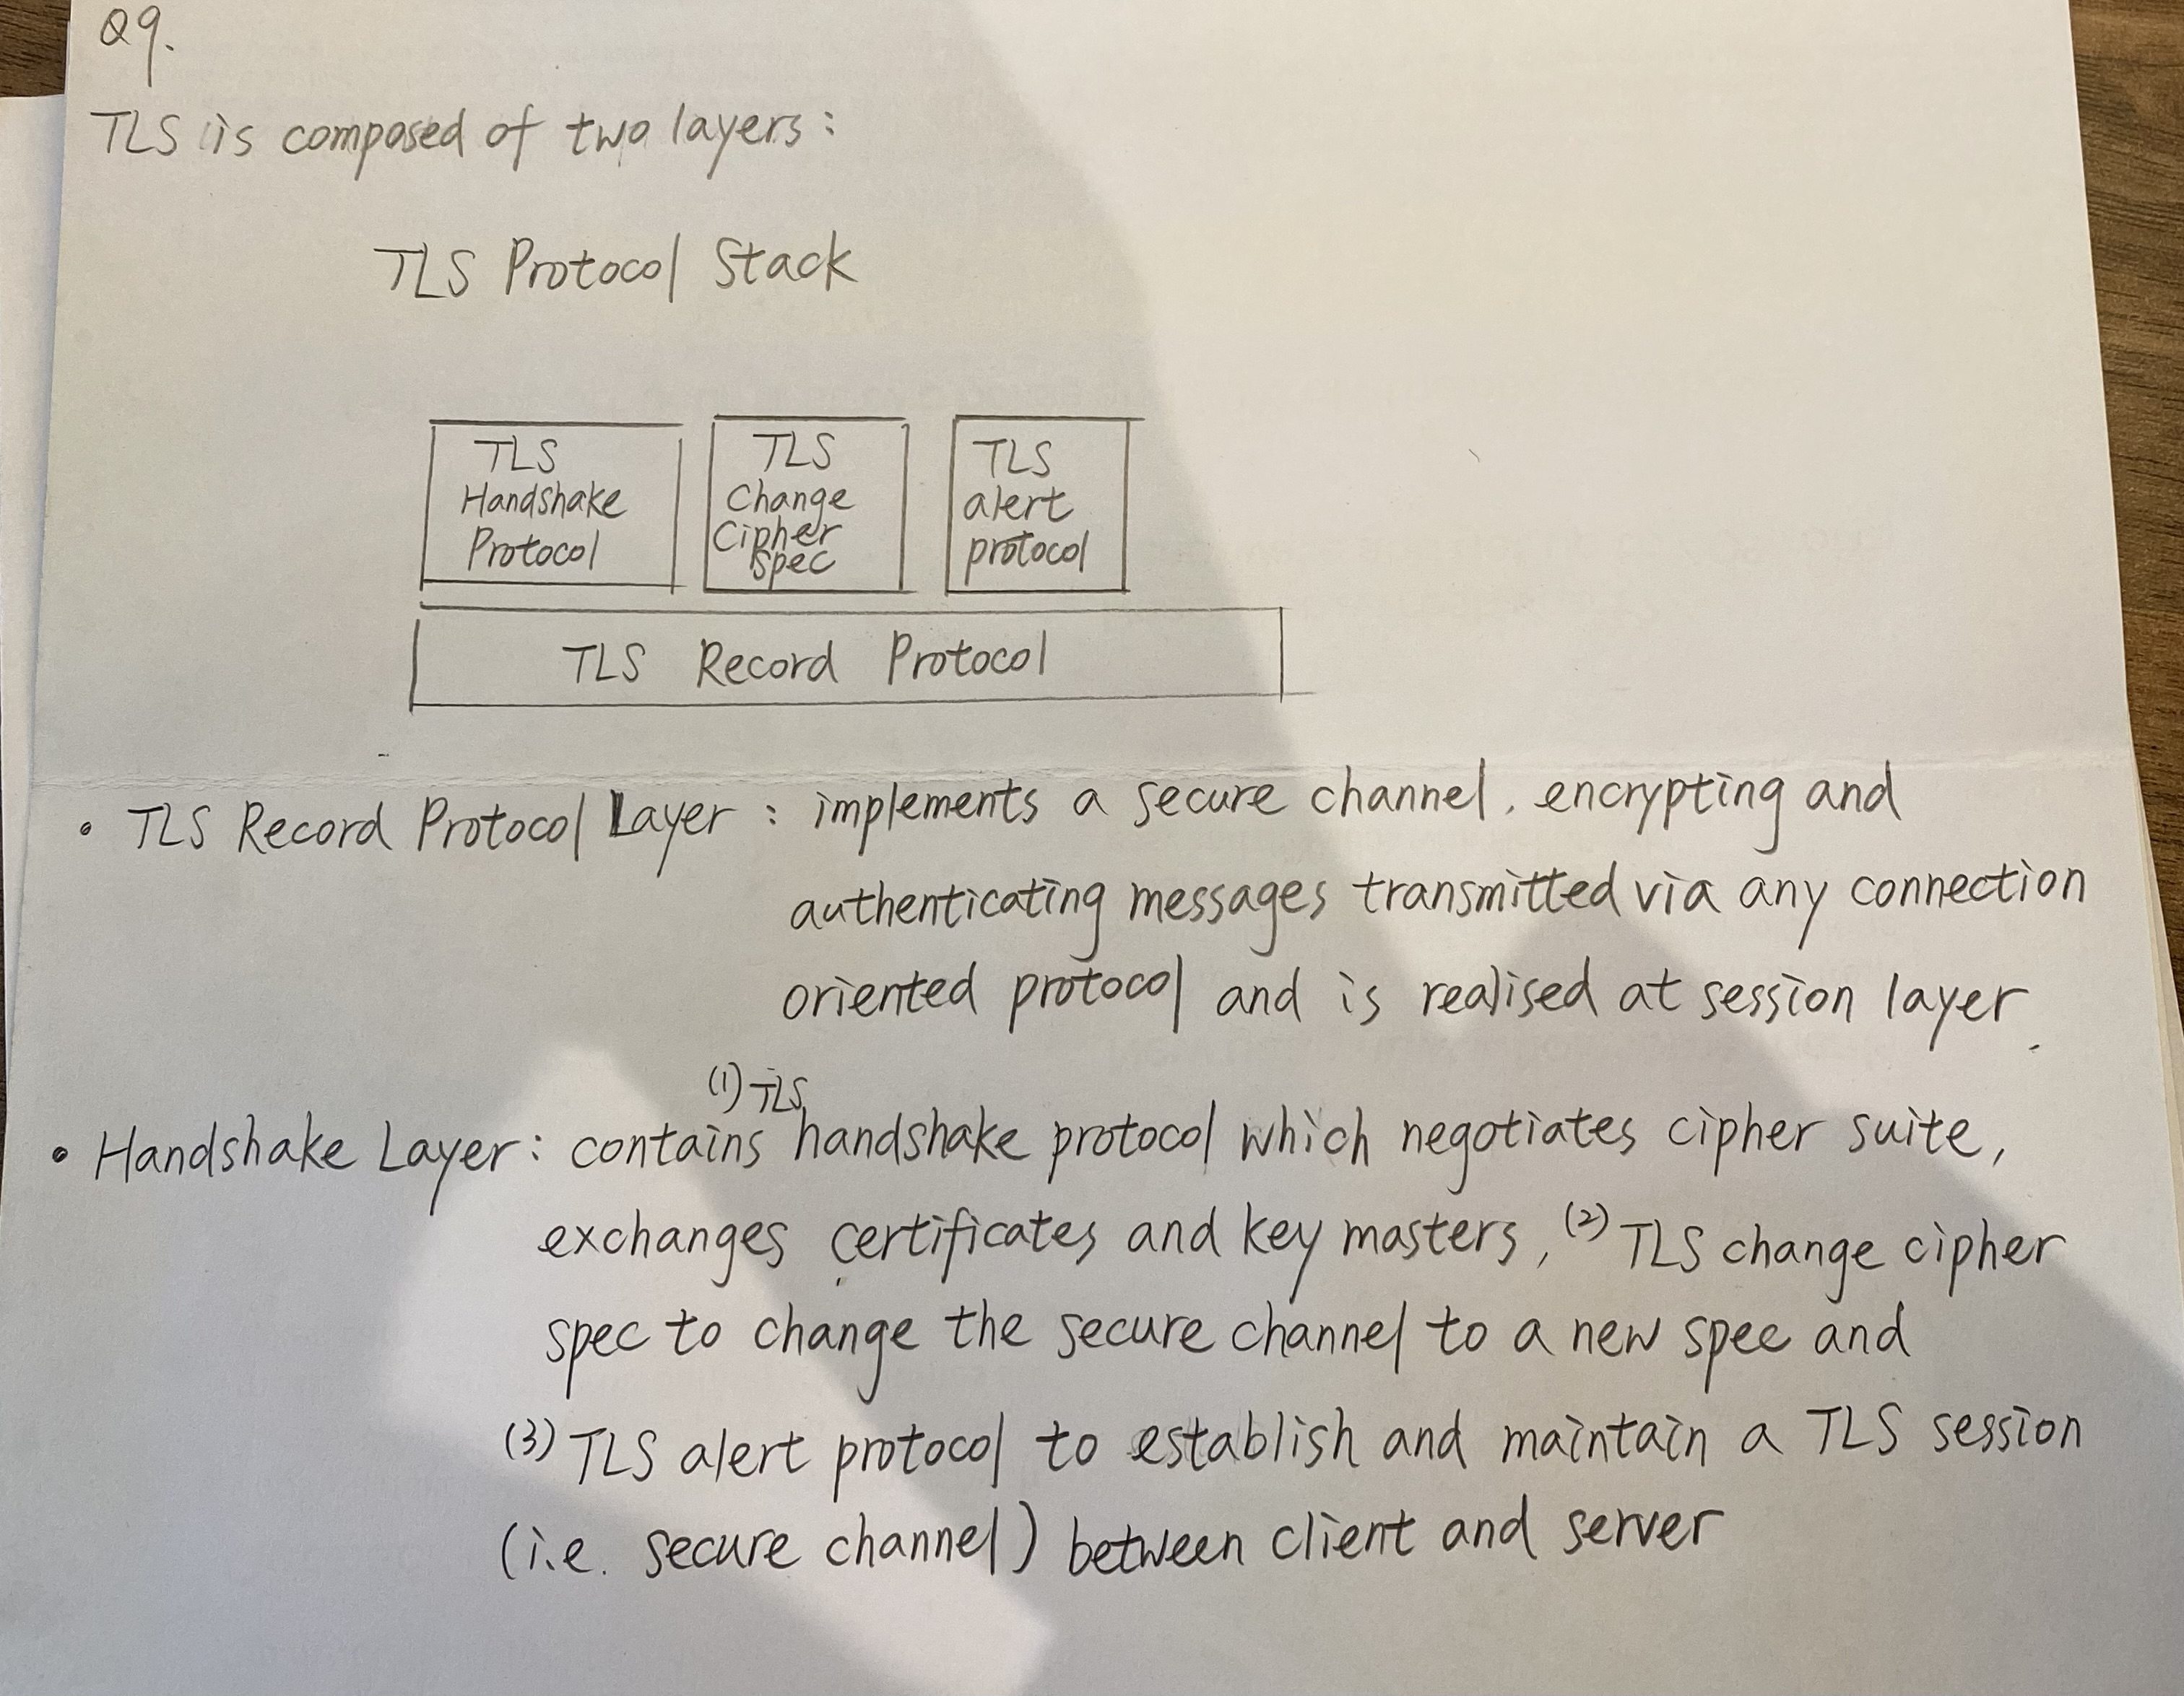 Q9.
TLS is composed of two layers:
TLS Protocol Stack
TLS
Handshake
Protocol
TLS
Change
Cipher
Spec
TLS
alert
protocol
TLS Record Protocol
• TLS Record Protocol Layer: implements a secure channel, encrypting and
authenticating messages transmitted via any connection
oriented protocol and is realised at session layer.
(1) TLS
• Handshake Layer: contains handshake protocol which negotiates cipher suite,
exchanges certificates and key masters, (2) TLS change cipher
spec to change the secure channel to a new spec and
(3) TLS alert protocol to establish and maintain a TLS session
(i.e. secure channel) between client and server